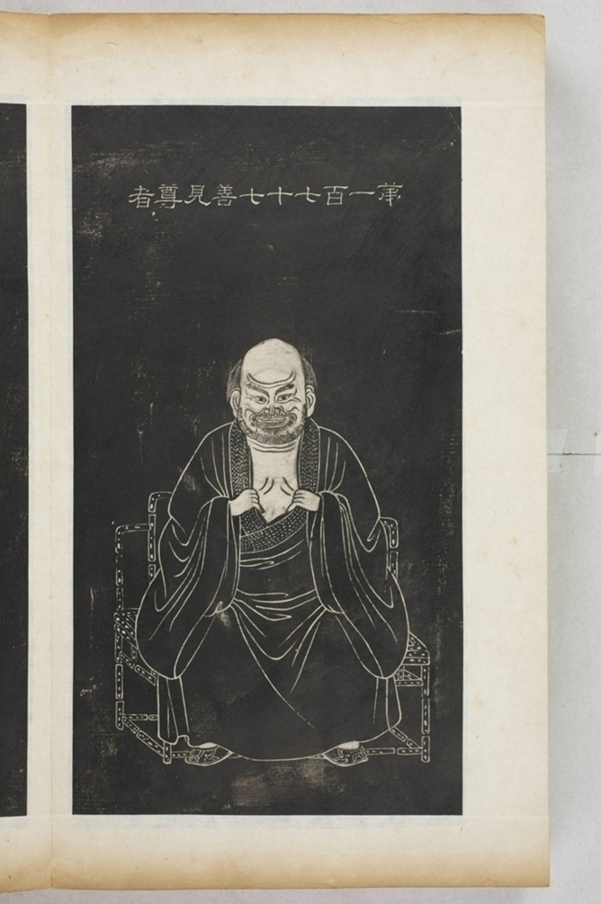 苐一百七十七善見尊者